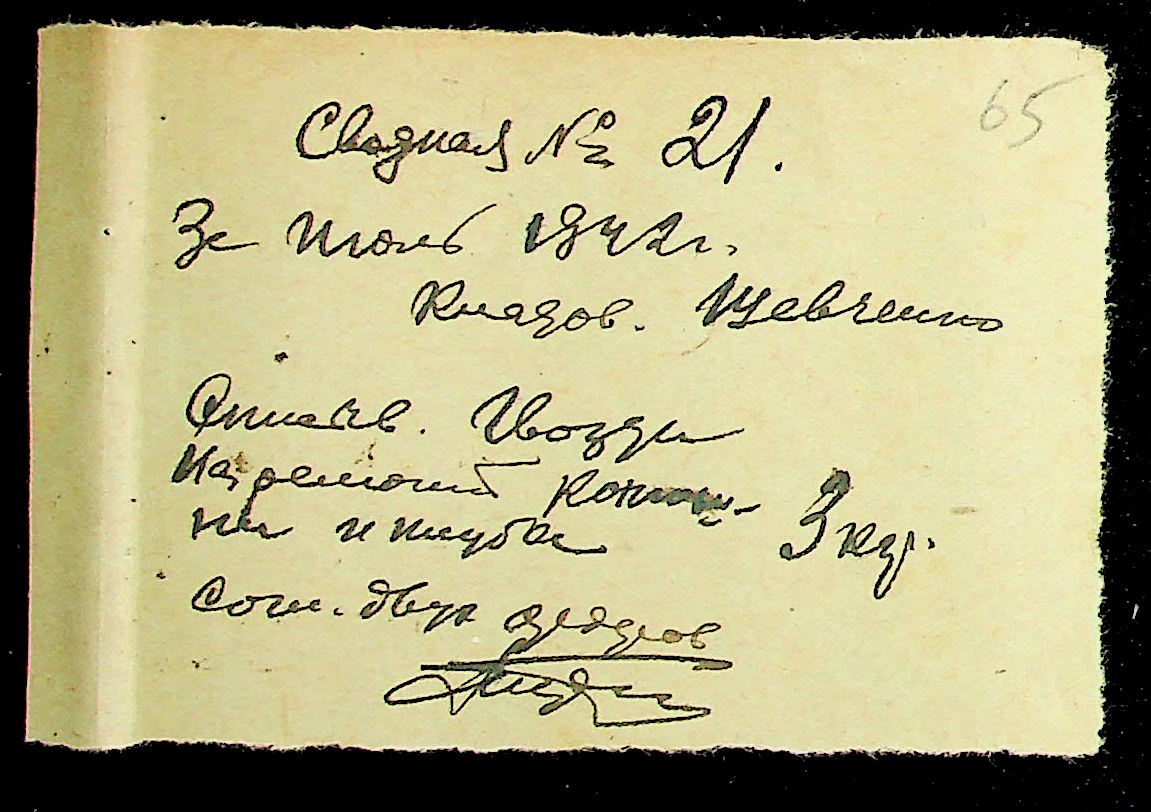 65
Сводная № 21.
За Июль 1942 г.
Кладов. Шевченко
Отпустить. Гвозди
На ремонт конюш-
ни и клуба 3 кгр.
Согл. двух